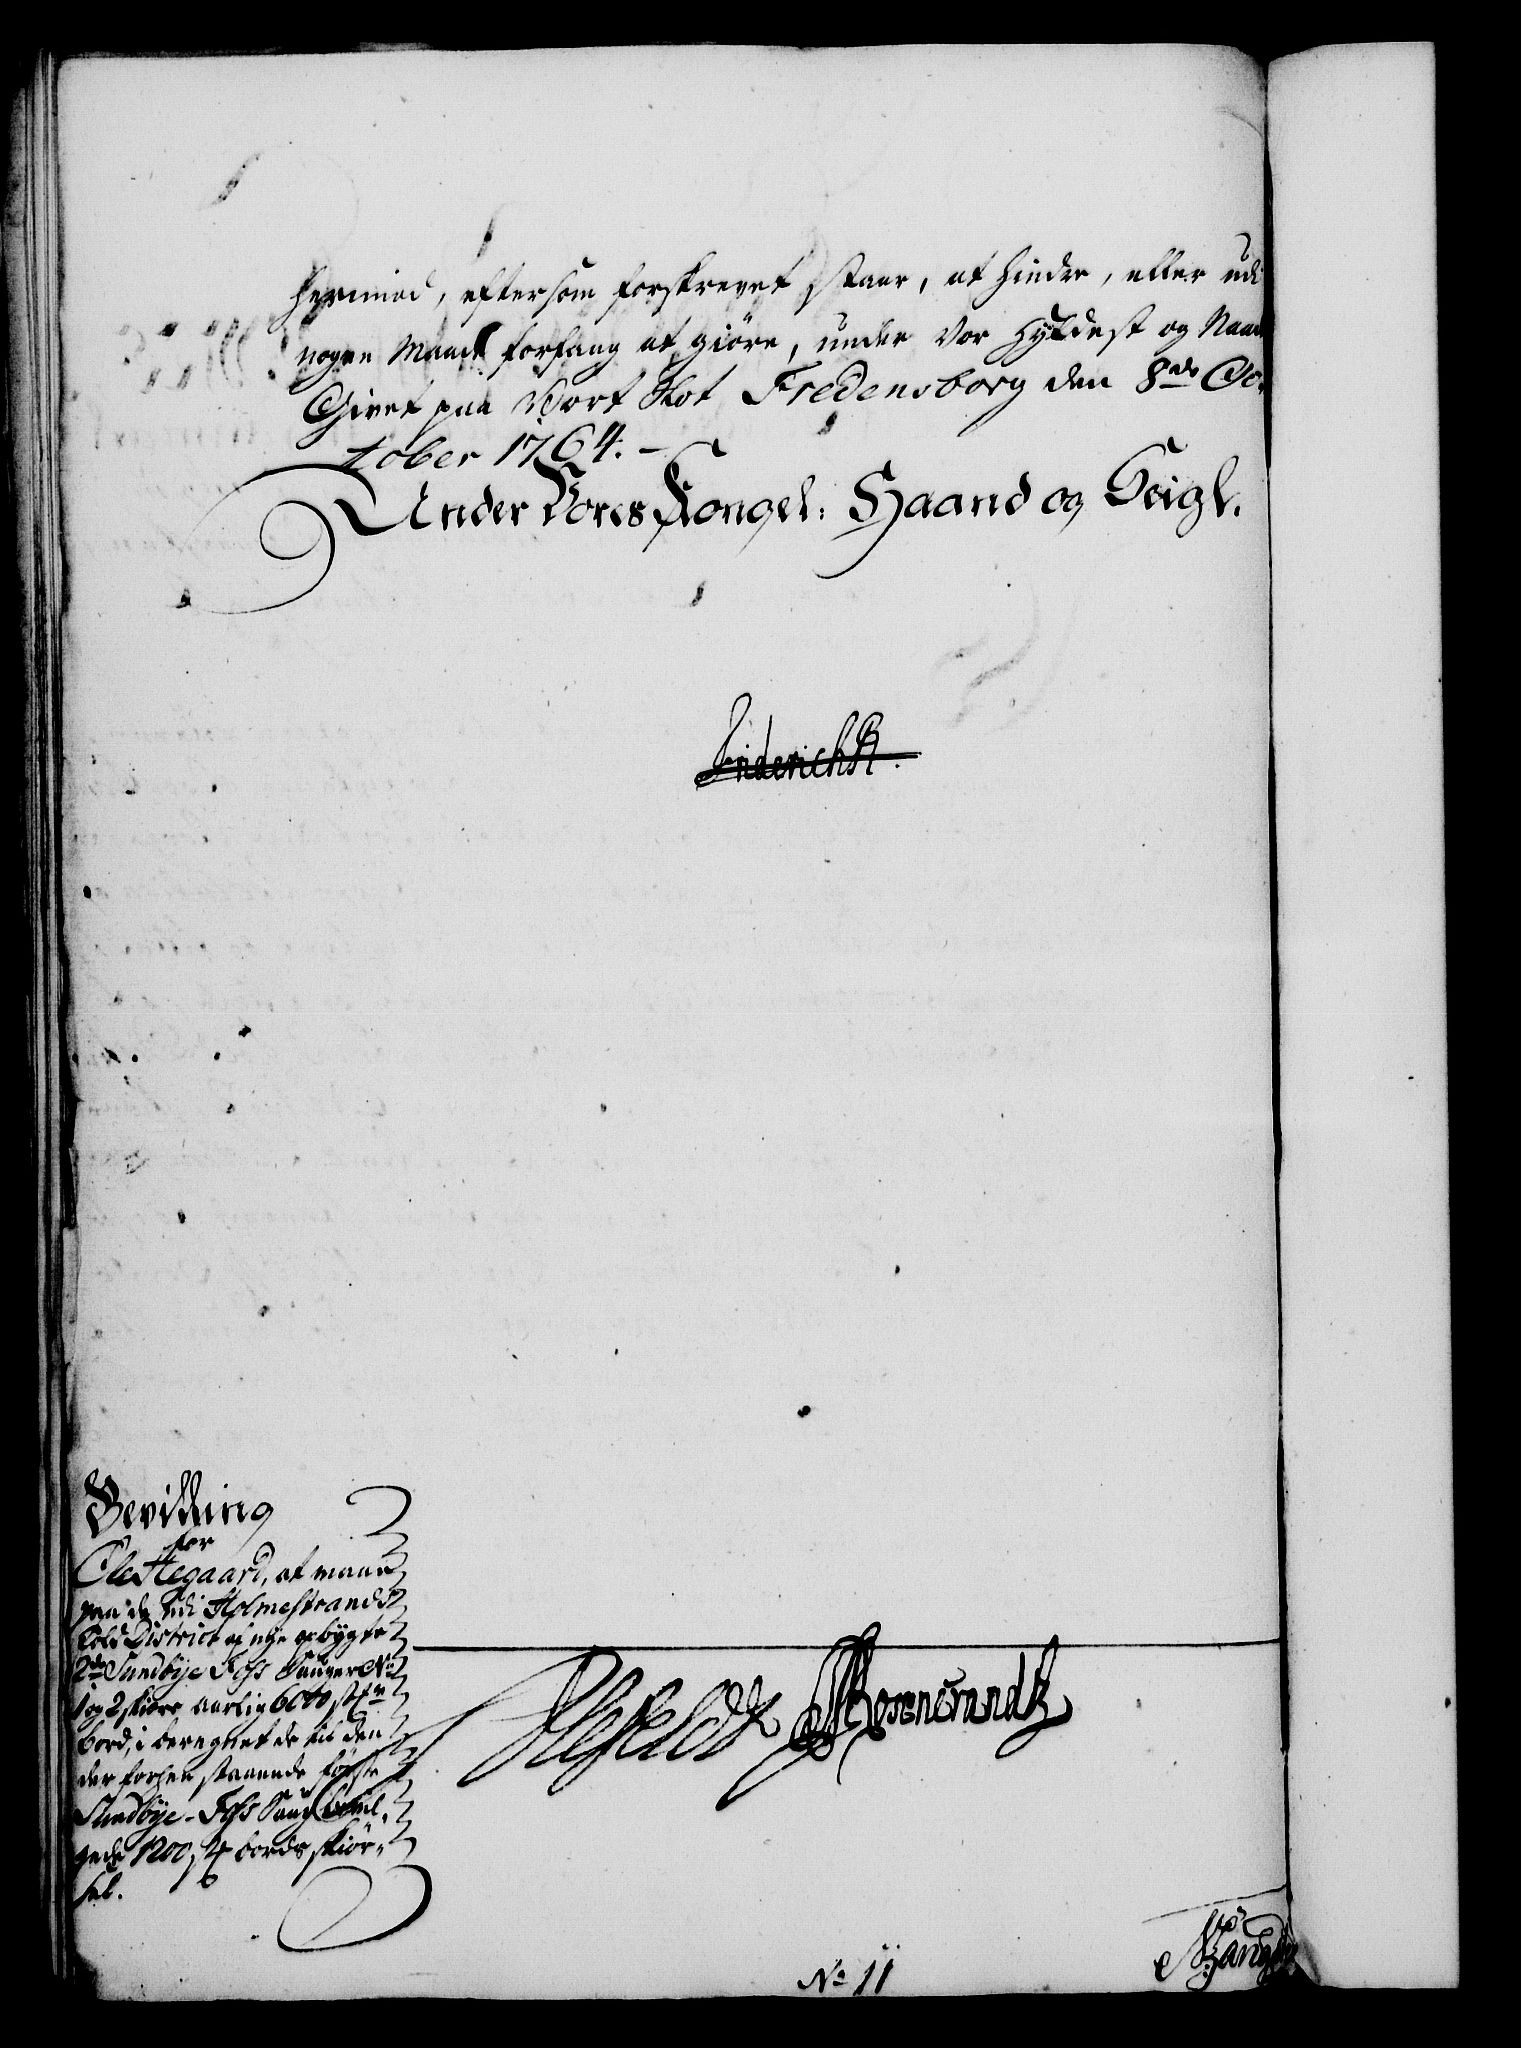 herimod, eftersom forskrevet staar, at hindre, eller udi
nogen Maade forfang at giöre, under Vor Hyldest og Naade
Givet paa Vort Slot Fredensborg den 8de Oc-
tober 1764. –
Under Vores Kongel: Haand og Seigl.
Friderich R.
Bevilling
for
Ole Hegaard, at maae
paa de udi Holmestrands
Told District af nye opbygte
2de Sundbye Foss Sauger No
1 og 2 skiære aarlig 6000 st
bord, i beregnet de til den
der forhen staaende første
Sundbye-Foss Saug bevil-
gede 1200 st bords skiør-
sel.
Ahlefeldt
No 11